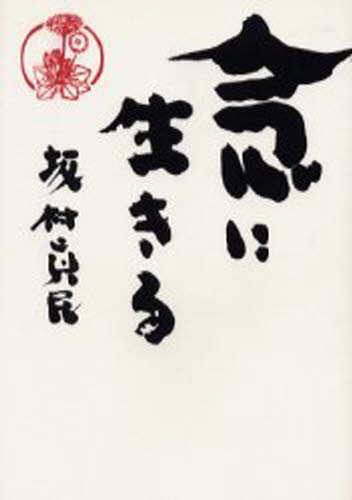 念に
生きる
坂村真民